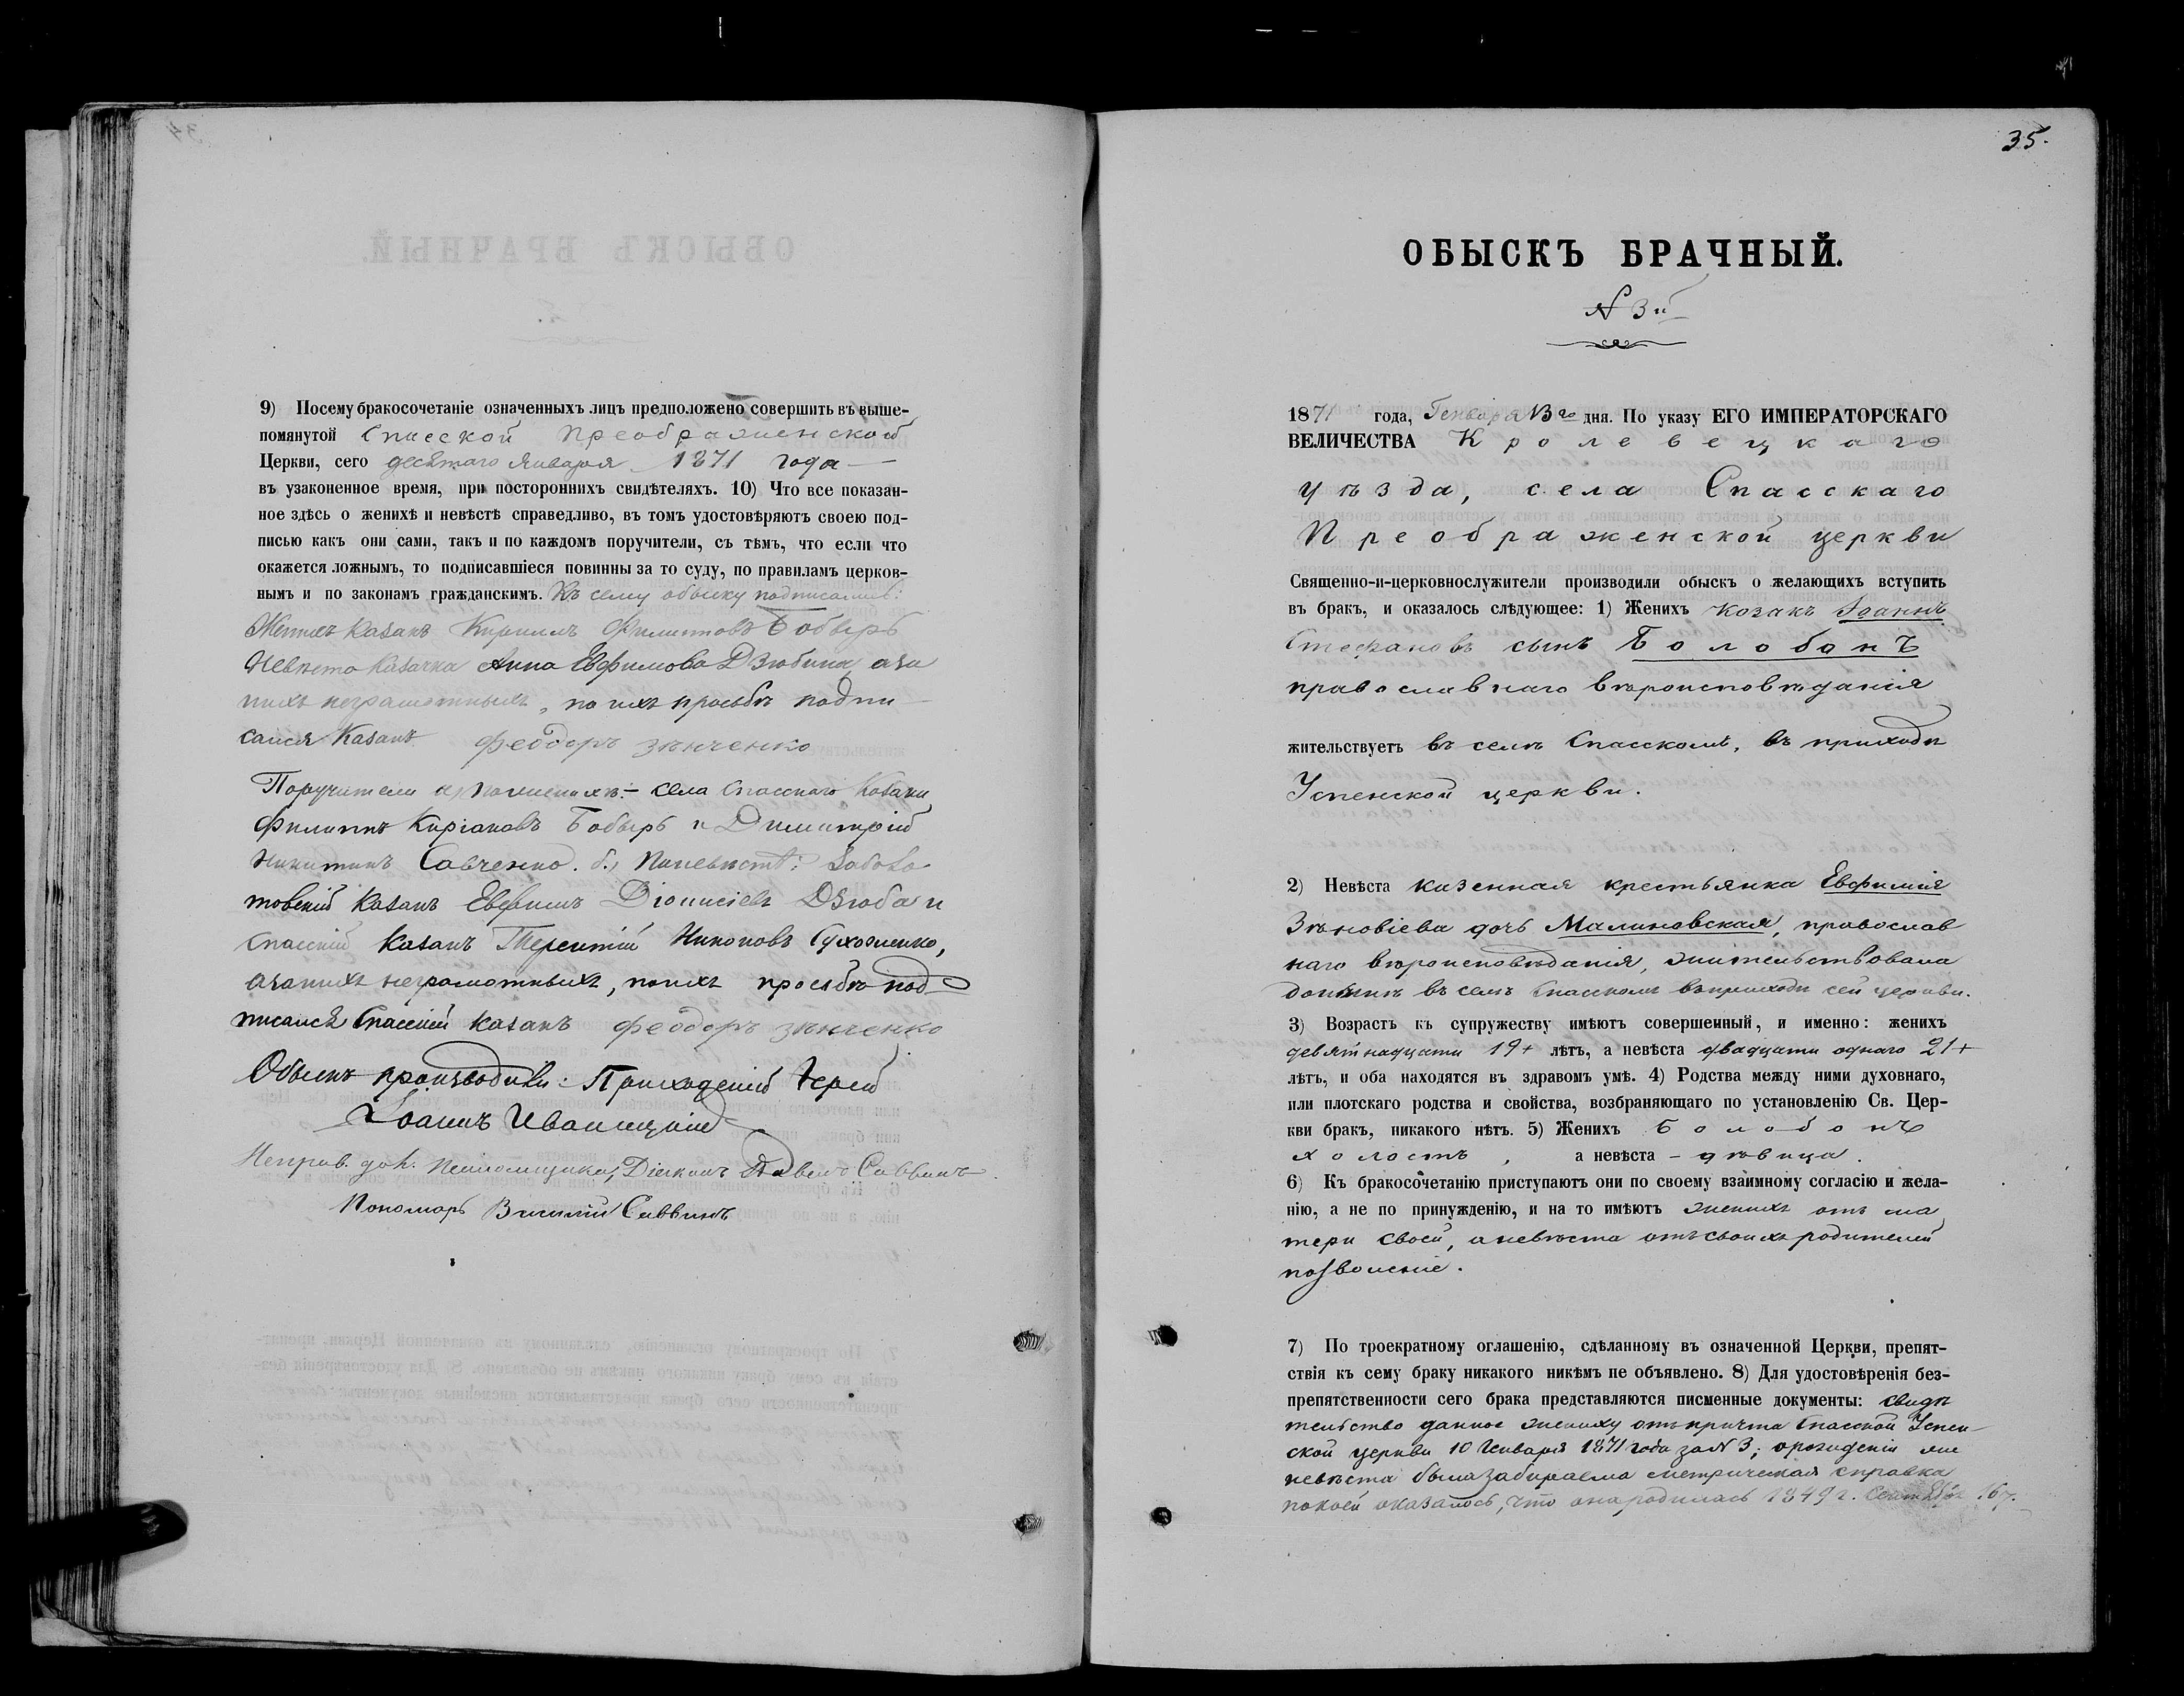 9) Посему бракосочетаніе означенныхъ лицъ предположено совершить въ выше-
помянутой Спасской Преображенской
Церкви, сего десятаго Января 1871 года —
въ узаконенное время, при постороннихъ свидѣтеляхъ. 10) Что все показан-
ное здѣсь о женихѣ и невѣстѣ справедливо, въ томъ удостовѣряютъ своею под-
писью какъ они сами, такъ и по каждомъ поручители, съ тѣмъ, что если что
окажется ложнымъ, то подписавшіеся повинны за то суду, по правиламъ церков-
нымъ и по законамъ гражданскимъ. Къ сему обыску подписались:
Женихъ Казакъ Кириллъ Филиповъ Бобырь
Невѣста Казачка Анна Евфимова Дзюбина, а за
нихъ неграмотныхъ, по ихъ просьбѣ подпи-
сался Казакъ Феодоръ Зѣнченко
Поручители а) по женихѣ:- села Спасскаго Козаки
Филиппъ Киріаковъ Бобырь и Димитрій
Никитинъ Савченко. б.) По невѣстѣ:
товскій Казакъ Евфимъ Діонисіевъ Дзюба и
Спасскій Казакъ Терентій Никоновъ
а за нихъ неграмотныхъ, по ихъ просьбѣ под-
писался Спасскій Казакъ Феодоръ Зѣнченко
Обыскъ производили: Приходскій Іерей
Іоаннъ
Исправ. дол. Псаломщика, Діаконъ Павелъ Саввинъ.
Пономарь Василій Саввинъ
35.
ОБЫСКЪ БРАЧНЫЙ.
N 3й
1871 года, Генваря 13го дня. По указу ЕГО ИМПЕРАТОРСКАГО
ВЕЛИЧЕСТВА Кролевецкаго
уѣзда, села Спасскаго
Преображенской церкви
Священно-и-церковнослужители производили обыскъ о желающихъ вступить
въ бракъ, и оказалось слѣдующее: 1) Женихъ Козакъ Іоаннъ
Стефановъ сынъ Болобанъ
православнаго вѣроисповѣданія
жительствуетъ въ селѣ Спасскомъ, въ приходѣ
Успенской церкви.
2) Невѣста казенная крестьянка Евфимія
Зѣновіева дочь Малиновская, православ
наго вѣроисповѣданія, жительствовала
донынѣ въ селѣ Спасскомъ въ приходѣ сей церкви.
3) Возрастъ къ супружеству имѣютъ совершенный, и именно: женихъ
девятнадцати 19+ лѣтъ, а невѣста двадцати одного 21+
лѣтъ, и оба находятся въ здравомъ умѣ. 4) Родства между ними духовнаго,
или плотскаго родства и свойства, возбраняющаго по установленію Св. Цер-
кви бракъ, никакого нѣтъ. 5) Женихъ Болобонъ
холостъ, а невѣста – дѣвица.
6) Къ бракосочетанію приступаютъ они по своему взаимному согласію и жела-
нію, а не по принужденію, и на то имѣютъ женихъ отъ ма
тери своей, а невѣста отъ своихъ родителей
позволеніе.
7) По троекратному оглашенію, сдѣланному въ означенной Церкви, препят-
ствія къ сему браку никакого никѣмъ не объявлено. 8) Для удостовѣренія без-
препятственности сего брака представляются писменные документы: свидѣ
тельство данное жениху отъ причта Спасской Успен-
ской церкви 10 Генваря 1871 года за N 3; о рожденіи же
невѣсты была забираема метрическая справка
по коей оказалось, что она родилась 1849 г. Сентября 16 ч.